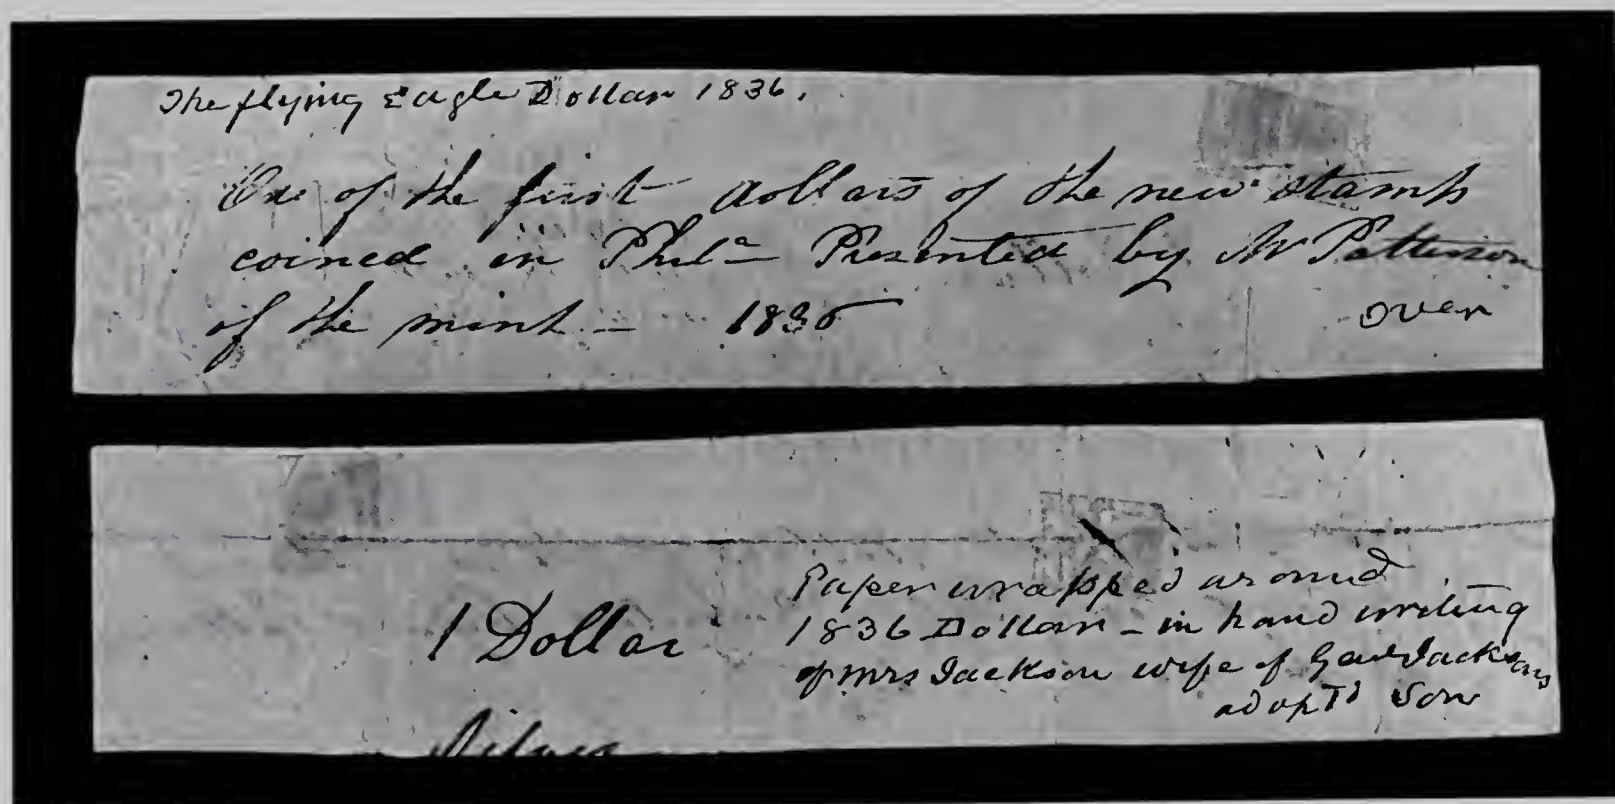 The flying Eagle Dollar 1836.
One of the first dollars of the new stamp
coined in Phila Presented by Mr Patterson
of the mint – 1836
over
1 Dollar
Silver
Paper wrapped around
1836 Dollar – in hand writing
of Mrs Jackson wife of Genl Jacksons
adoptd Son